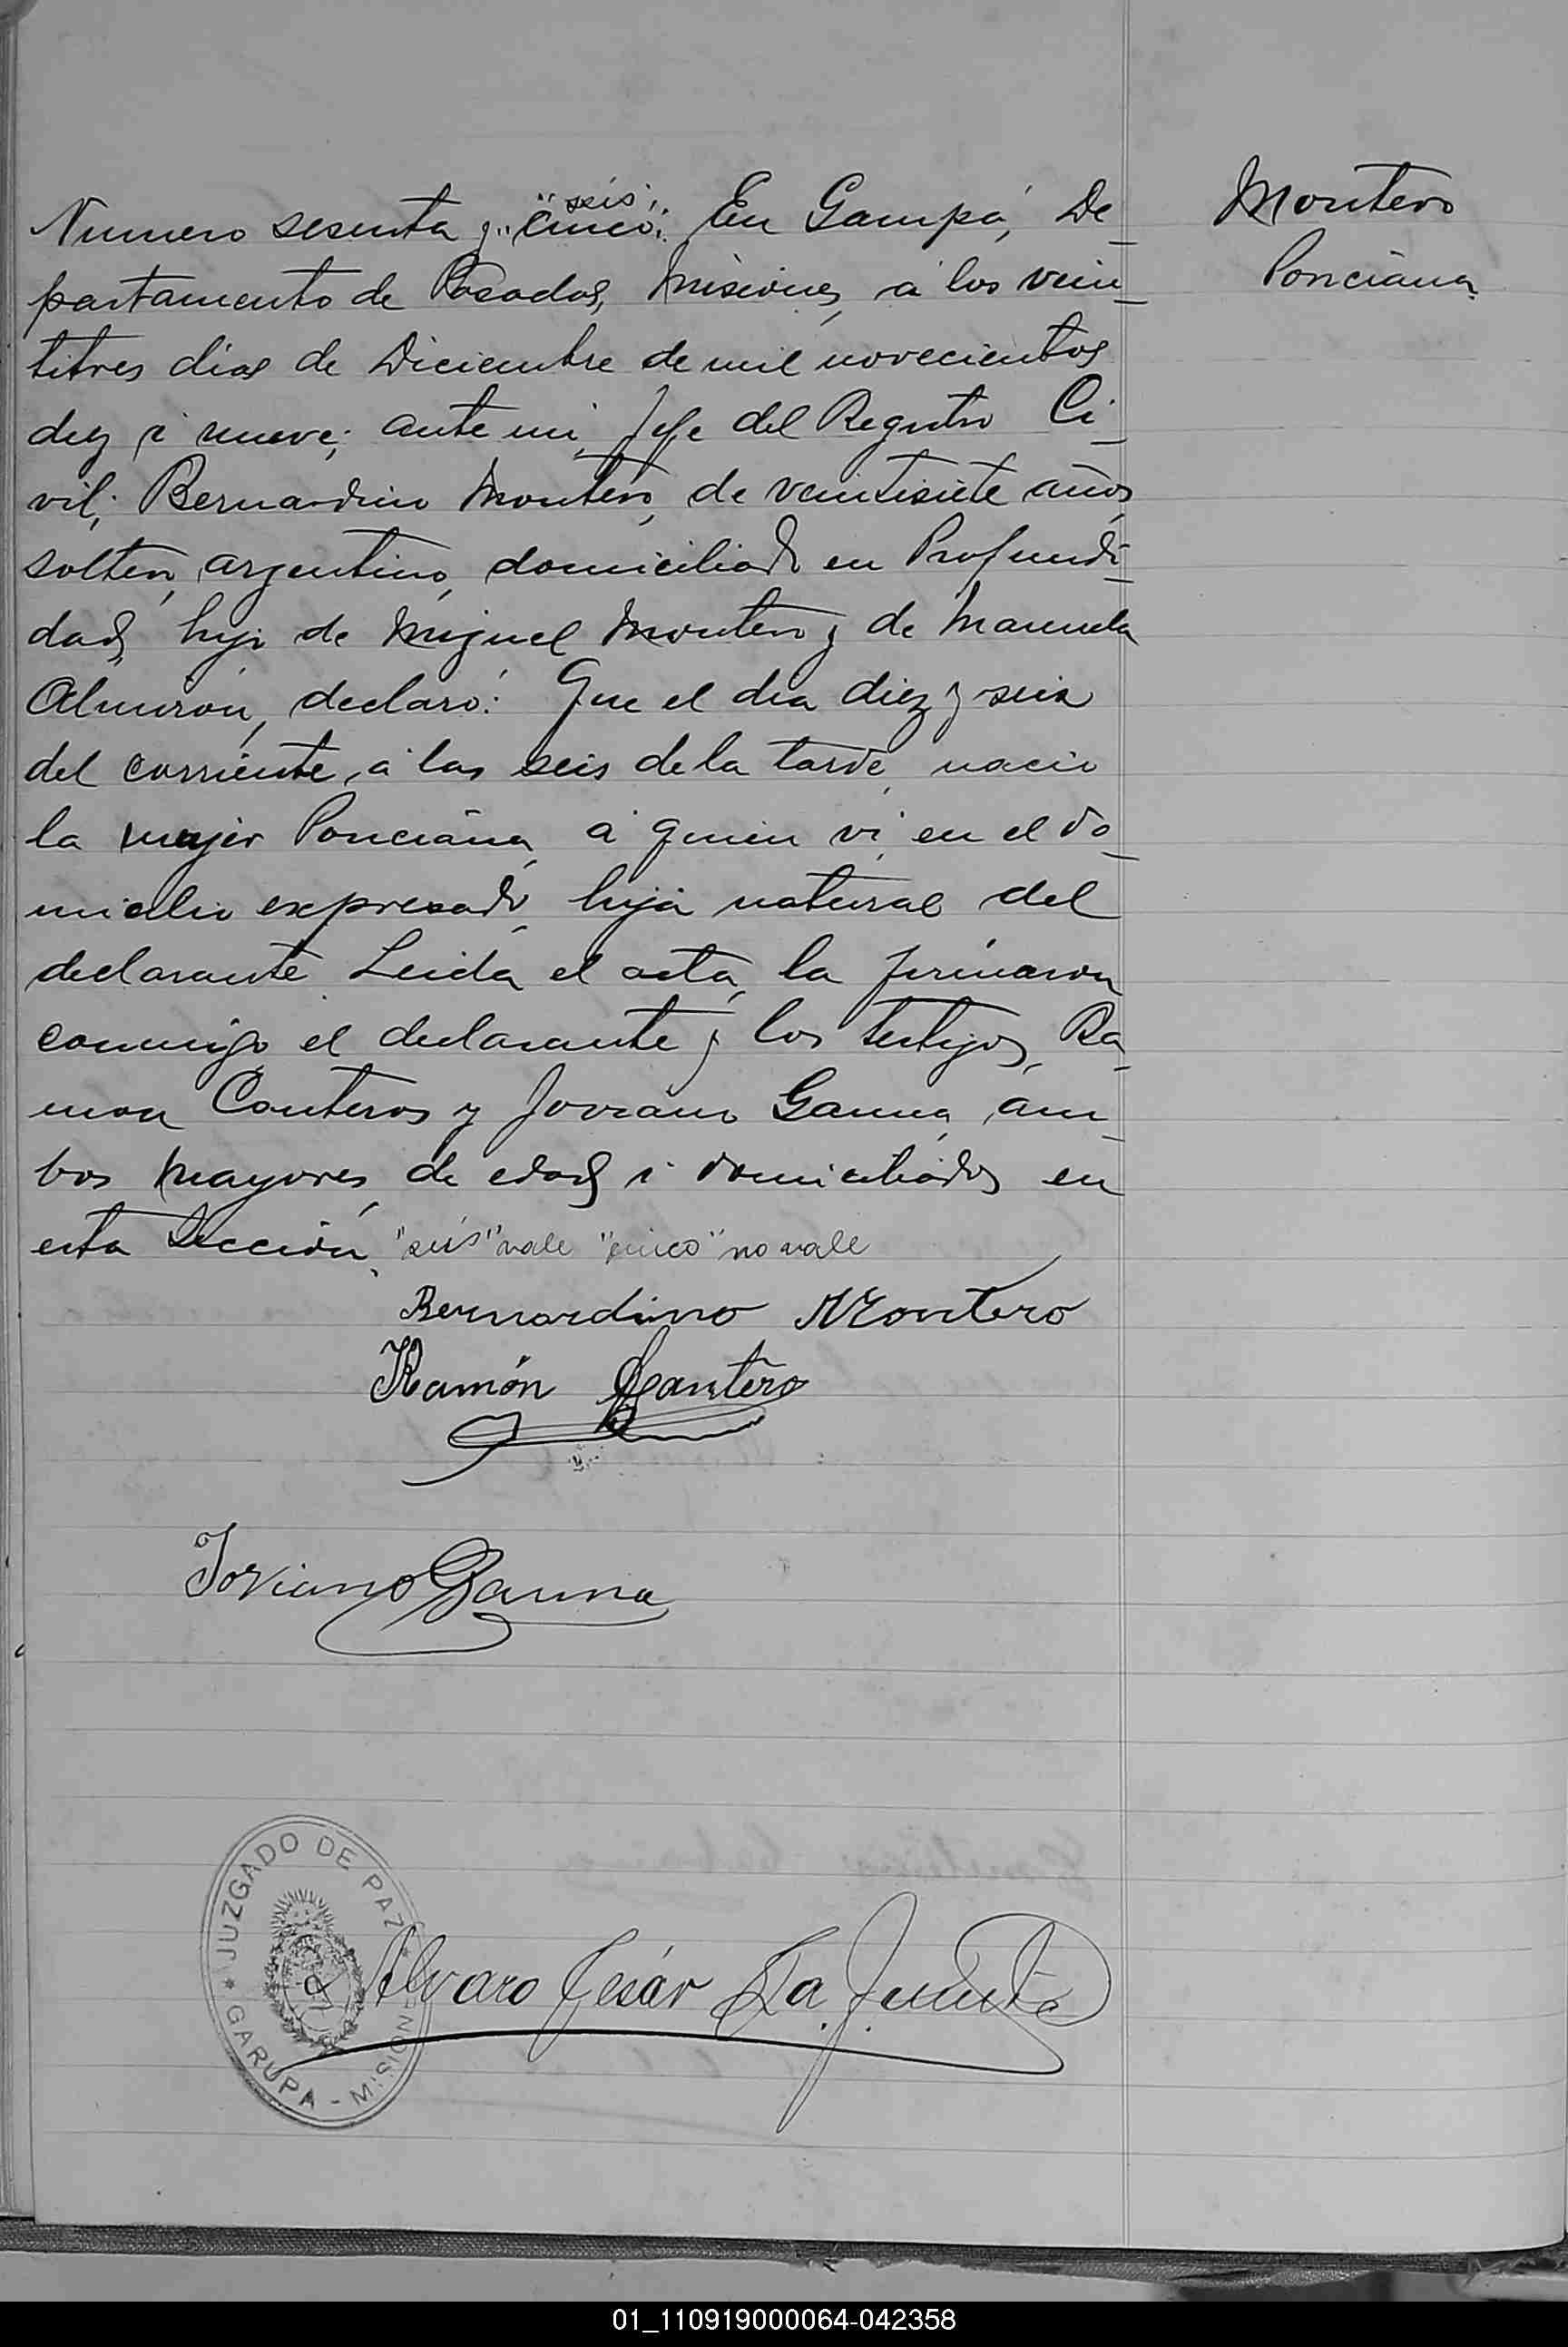 Montero
Ponciana
Numero sesenta y "cinco" "seis". En Garupá, De-
partamento de Posadas, Misiones, á los vein-
titres dias de Diciembre de mil novecientos
diez i nueve; ante mi, Jefe del Registro Ci-
vil; Bernardino Montero, de veintisiete años,
soltero, argentino, domiciliado en Profundi-
dad, hijo de Miguel Montero y de Manuela
Almirón, declaró: Que el dia diez y seis
del corriente, á las seis de la tarde, nació
la mujer Ponciana, á quien vi en el do-
micilio expresado, hija natural del
declarante. Leida el acta, la firmaron
conmigo el declarante y los testigos, Ra-
mon Canteros y Joviano Gauna, am-
bos mayores de edad i domiciliados en
esta Sección. "seis" vale "cinco" no vale
Bernardino Montero
Ramón Cantero
Joviano Gauna
JUZGADO DE PAZ
GARUPA - MISIONES
Alvaro César La Fuente
01_110919000064-042358